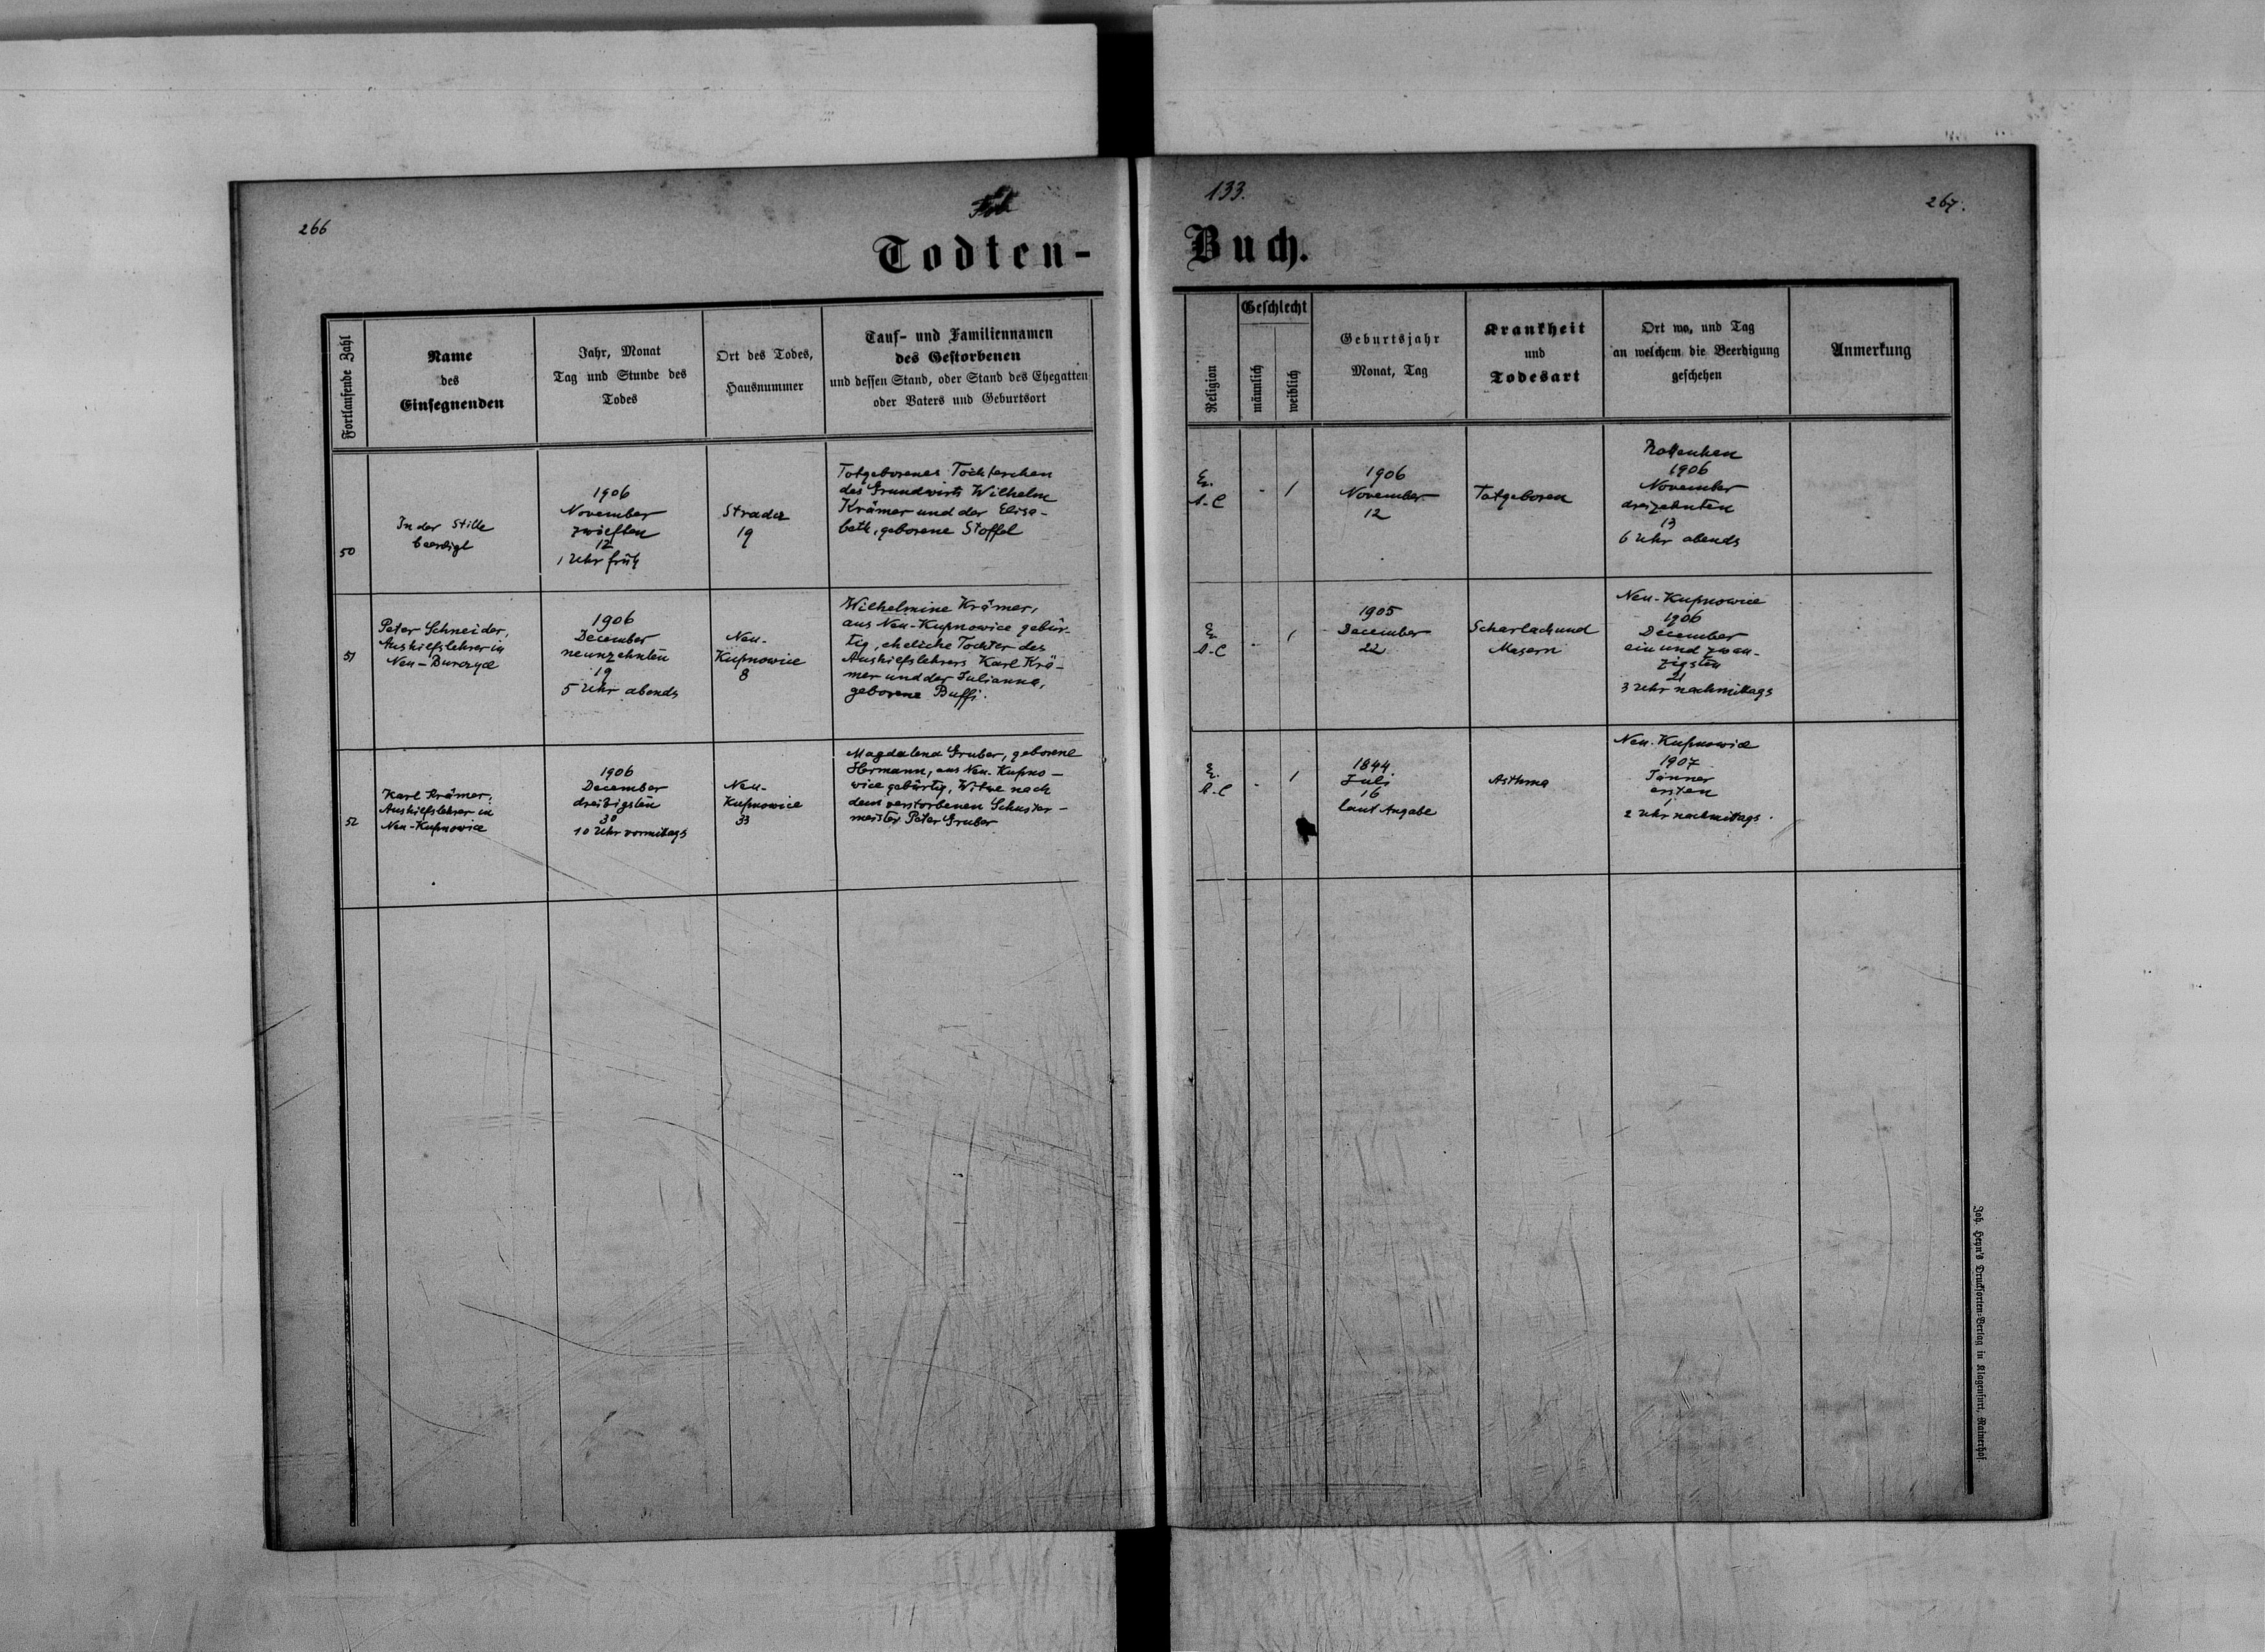 266
133.
267.
Todten-
Buch.
Fortlaufende Zahl
Name
des
Einsegnenden
Jahr, Monat
Tag und Stunde des
Todes
Ort des Todes,
Hausnummer
Tauf- und Familiennamen
des Gestorbenen
und dessen Stand, oder Stand des Ehegatten
oder Vaters und Geburtsort
Religion
Geschlecht
männlich
weiblich
Geburtsjahr
Monat, Tag
Krankheit
und
Todesart
Ort wo, und Tag
an welchem die Beerdigung
geschehen
Anmerkung
50
In der Stille
beerdigt
1906
November
zwölften
12
1 Uhr früh
Stradez
19
Totgeborenes Töchterchen
des Grundwirts Wilhelm
Krämer und der Elisa-
beth, geborene Stoffel
Ev.
A.C
-
1
1906
November
12
Totgeboren
1906
November
dreizehnten
13
6 Uhr abends
51
Peter Schneider,
Aushilfslehrer in
Neu-Burczyce
1906
December
neunzehnten
19
5 Uhr abends
Neu-
Kupnowice
8
Wilhelmine Krämer,
aus Neu-Kupnowice gebür-
tig, eheliche Tochter des
Aushilfslehrers Karl Krä-
mer und der Julianna,
geborene Buffi.
Ev.
A.C
-
1
1905
December
22
Scharlach und
Masern
Neu-Kupnowice
1906
December
ein und zwan-
zigsten
21
3 Uhr nachmittags
52
Karl Krämer,
Aushilfslehrer in
Neu-Kupnowice
1906
December
dreißigsten
30
10 Uhr vormittags
Neu-
Kupnowice
33
Magdalena Gruber, geborene
Hermann, aus Neu-Kupno-
wice gebürtig, Witwe nach
dem verstorbenen Schuster-
meister Peter Gruber
Ev.
A.C
-
1
1844
Juli
16
laut Angabe
Asthma
Neu-Kupnowice
1907
Jänner
ersten
1
2 Uhr nachmittags.
Joh. Heyn's Drucksorten-Verlag in Klagenfurt, Rainerhof.